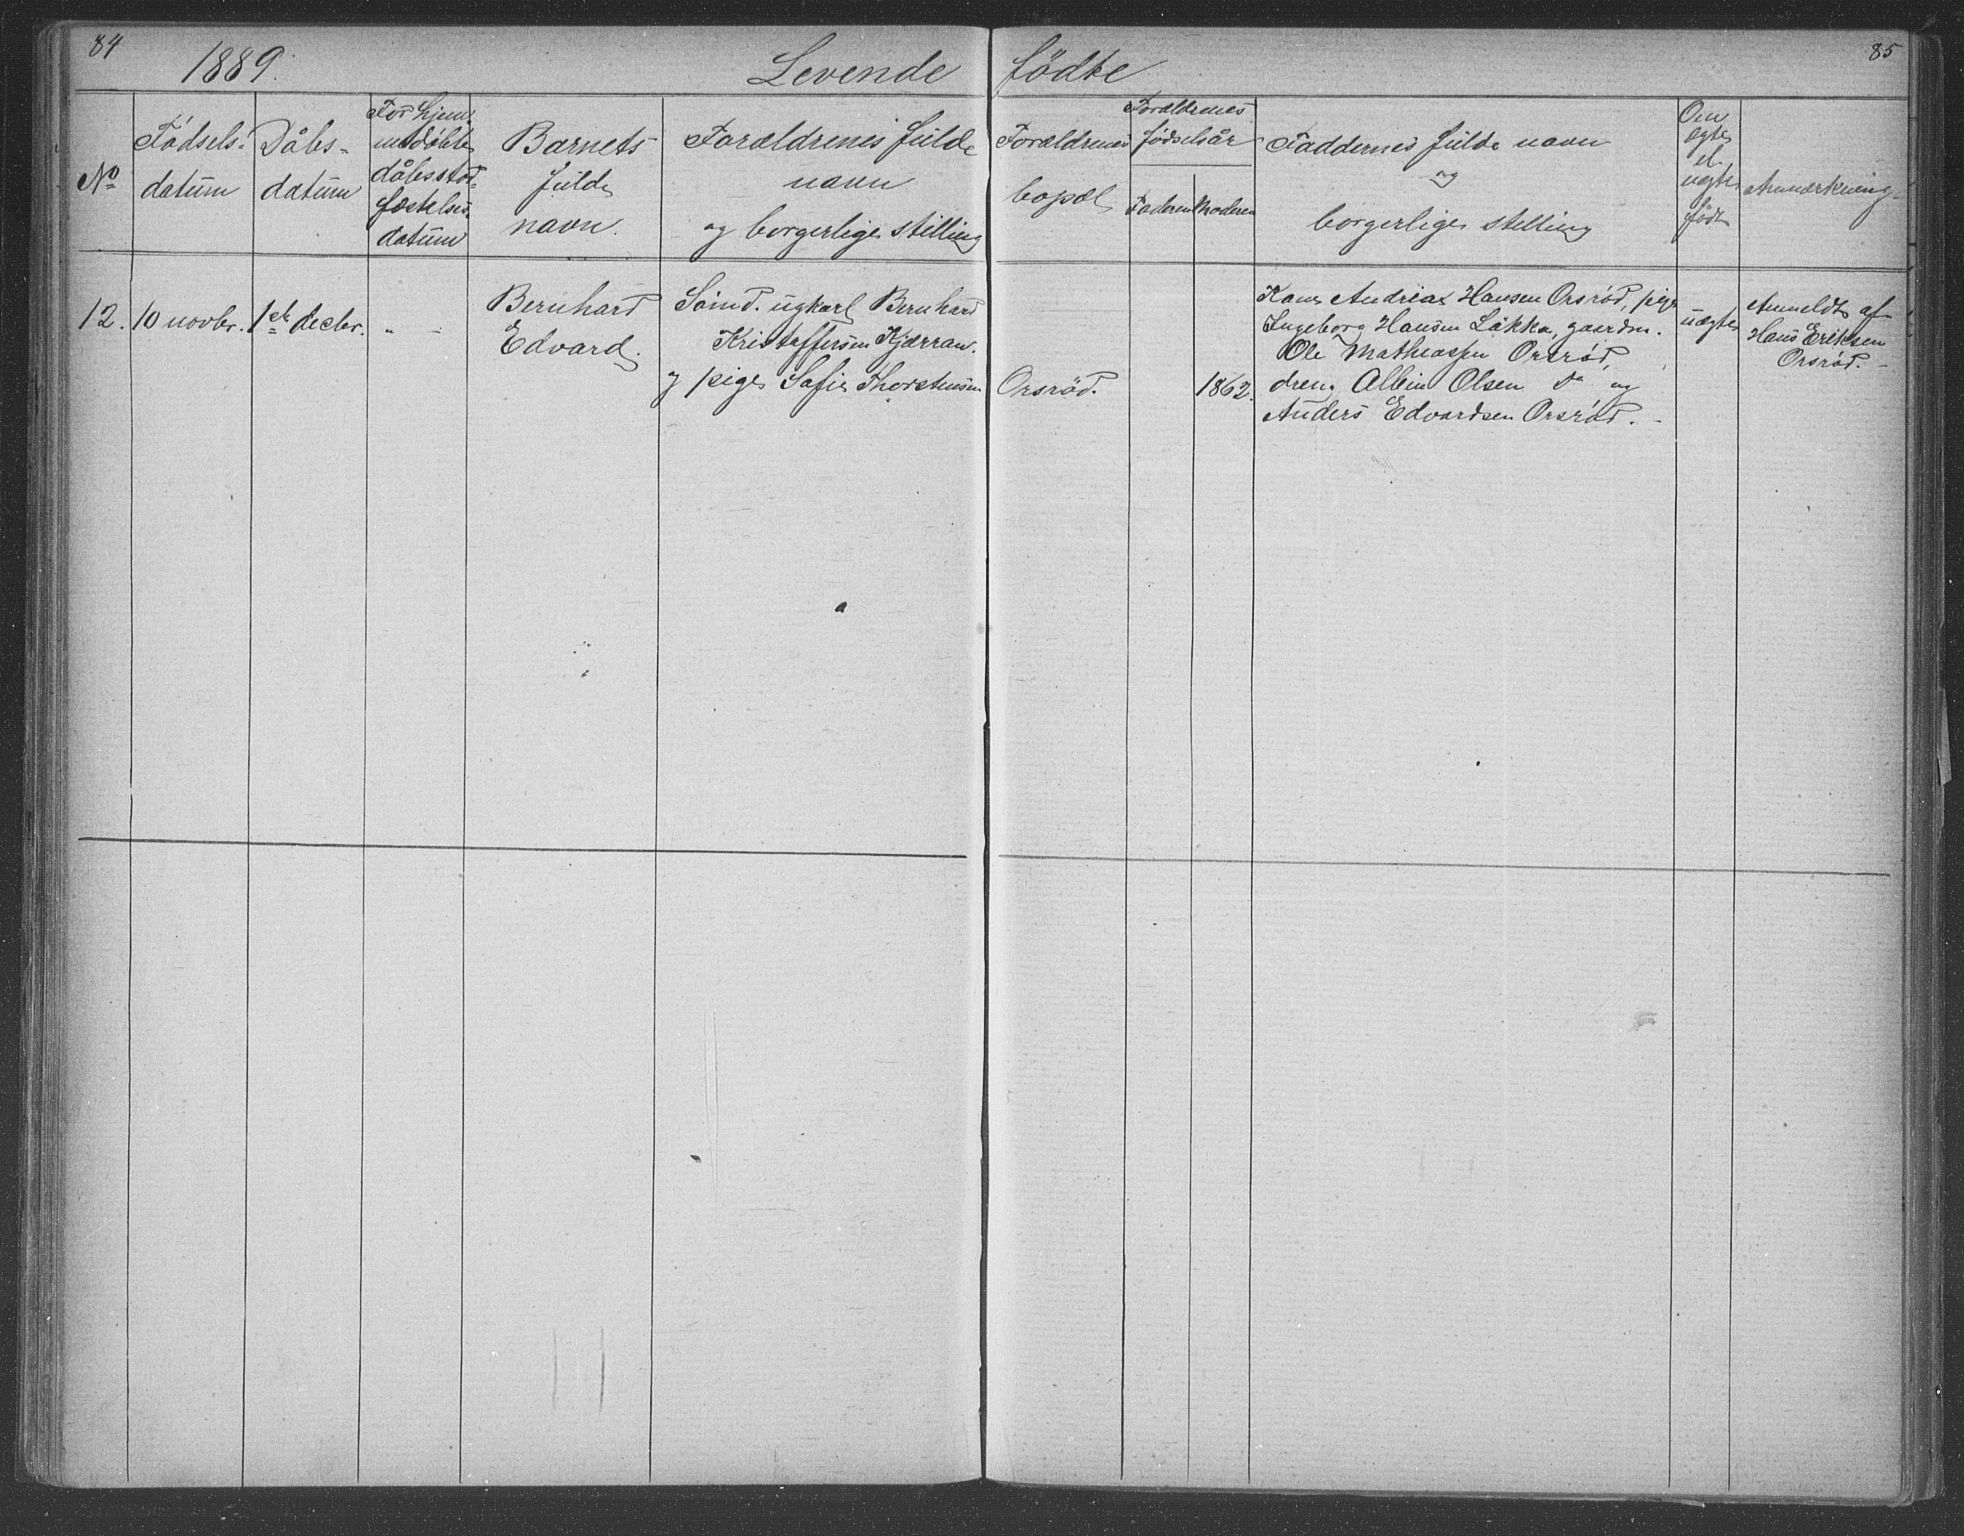 84
1889.
Levende fødte
85
No
Fødsels-
datum
Dåbs-
datum
For hjem-
medøbte
dåbsstad-
fæstelses-
datum
Barnets
fulde
navn.
Forældrenes fulde
navn
og borgerlige stilling
Forældrenes
bopæl
Forældrenes
fødselsår
Faderen
Moderen
Faddernes fulde navn
og
borgerlige stilling
Om
ægte
el.
uægte
født
Anmærkning
12.
10 novbr.
1ste decbr.
" -
Bernhard
Edvard.
ugkarl Bernhard
Kristoffersen Kjærran.
og pige Sofie Thorstensen
Orsrød.
1862.
Kone Andrea Hansen Orsrød, pige
Ingeborg Hansen Løkka, gaardm.
Ole Matheassen Orsrød,
dreng Albin Olsen do og
Anders Edvardsen Orsrød. -
uægte
Anmeldt af
Hans Eriksen
Orsrød. -